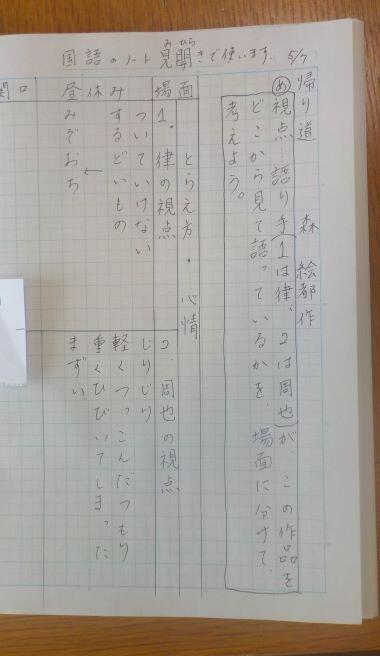 国語のノート見開きで使います。 5/7
みひら
帰り道 森 絵都作
め 視点…語り手(1は律、2は周也)が、この作品を
どこから見て語っているかを、場面に分けて、
考えよう。
場面
とらえ方・心情
1.律の視点
2.周也の視点
昼休み
ついていけない
するどいもの
←
みぞおち
じりじり
軽くつっこんだつもり
重くひびいてしまった
まずい
関口